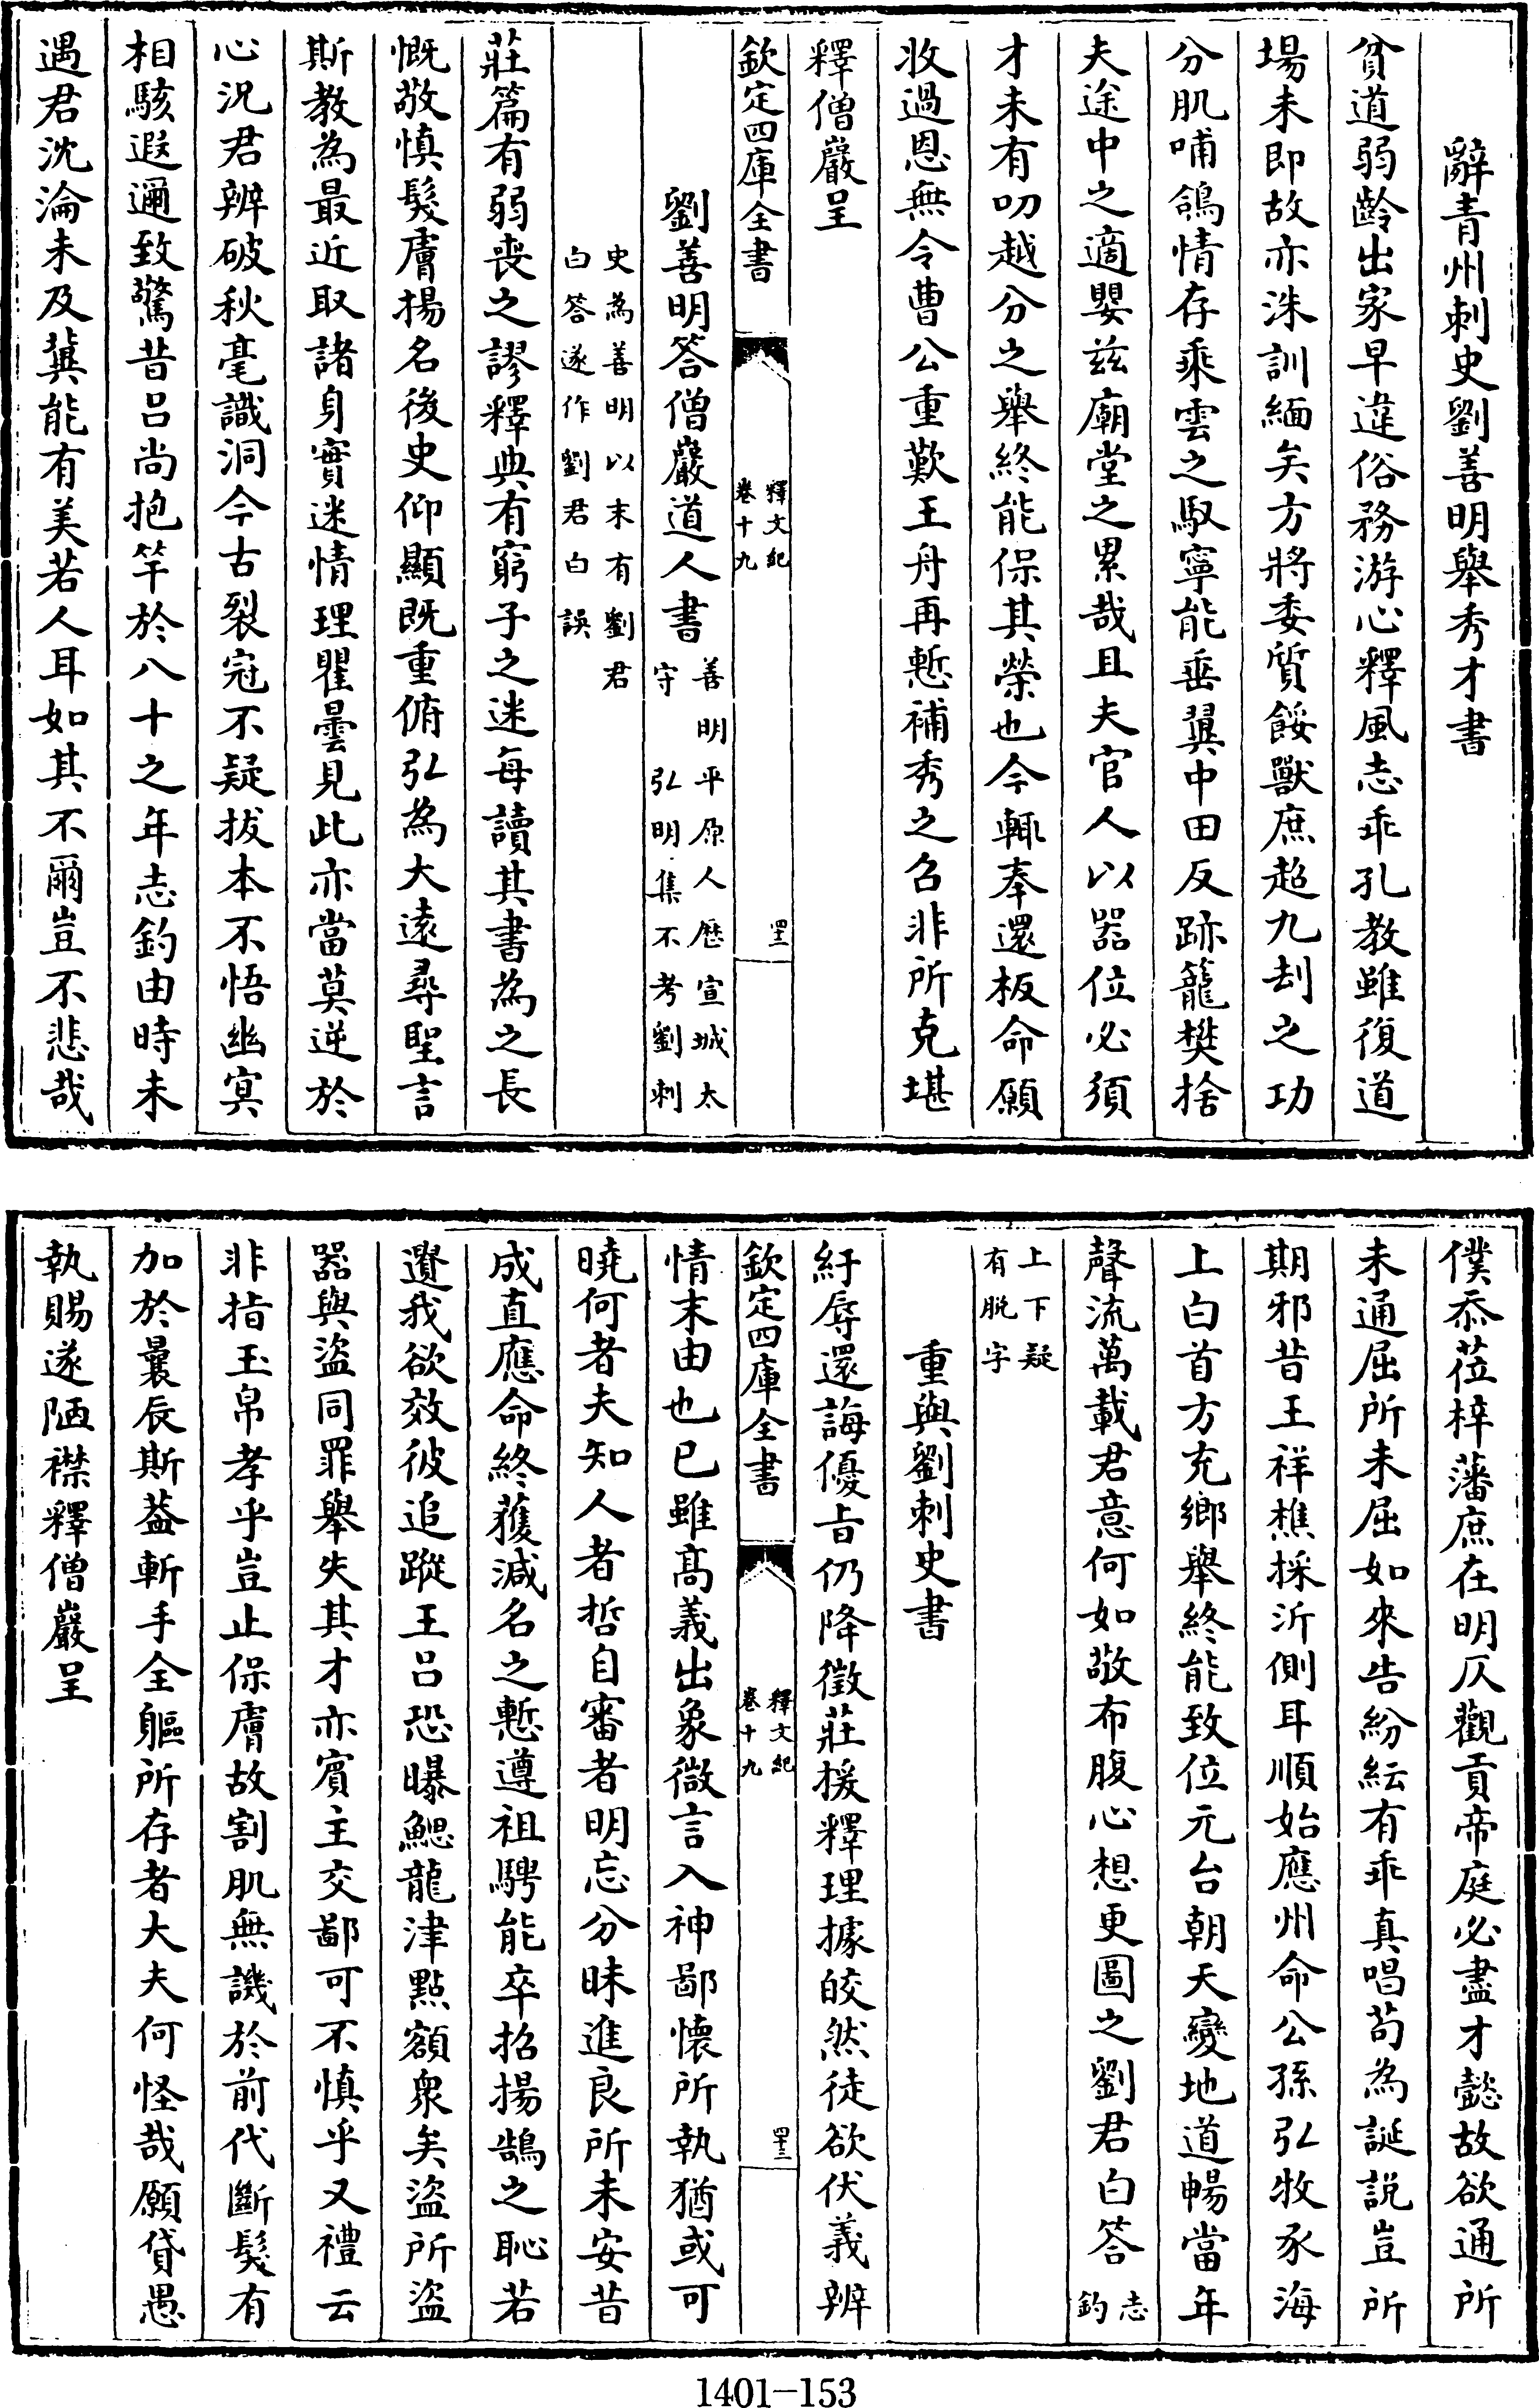 辭青州刺史劉善明舉秀才書
貧道弱齡出家早違俗務游心釋風志乖孔教雖復道
場未即故亦洙訓緬矣方將委質餒獸庶超九刦之功
分肌哺鴿情存乘雲之馭寧能垂翼中田反跡籠樊捨
夫途中之適嬰兹廟堂之累哉且夫官人以器位必須
才未有叨越分之舉終能保其榮也今輒奉還板命願
收過恩無令曹公重歎王舟再慙補秀之名非所克堪
釋僧巖呈
欽定四庫全書
釋文紀
卷十九
四二
劉善明答僧巖道人書
善明平原人歷宣城太
守 弘明集不考劉刺
史為善明以末有劉君
白答遂作劉君白誤
莊篇有弱喪之謬釋典有窮子之迷每讀其書為之長
慨敬慎髮膚揚名後史仰顯既重俯弘為大遠尋聖言
斯教為最近取諸身實迷情理瞿曇見此亦當莫逆於
心況君辨破秋毫識洞今古裂冠不疑拔本不悟幽冥
相駭遐邇致驚昔呂尚抱竿於八十之年志釣由時未
遇君沈淪未及冀能有美若人耳如其不爾豈不悲哉
僕忝莅梓藩庶在明仄觀貢帝庭必盡才懿故欲通所
未通屈所未屈如來告紛紜有乖真唱苟為誕說豈所
期邪昔王祥樵採沂側耳順始應州命公孫弘牧豕海
上白首方充鄉舉終能致位元台朝天變地道暢當年
聲流萬載君意何如敬布腹心想更圖之劉君白答
志
釣
上下疑
有脫字
重與劉刺史書
紆辱還誨優㫖仍降徵莊援釋理據皎然徒欲伏義辨
欽定四庫全書
釋文紀
卷十九
四三
情末由也已雖髙義出象微言入神鄙懷所執猶或可
曉何者夫知人者哲自審者明忘分昧進良所未安昔
成直應命終獲減名之慙遵祖騁能卒招揚鵠之恥若
遺我欲效彼追蹤王呂恐曝鰓龍津點額衆矣盜所盜
器與盜同罪舉失其才亦賓主交鄙可不慎乎又禮云
非指玉帛孝乎豈止保膚故割肌無譏於前代斷髮有
加於曩辰斯葢斬手全軀所存者大夫何怪哉願貸愚
執賜遂陋襟釋僧巖呈
1401—153